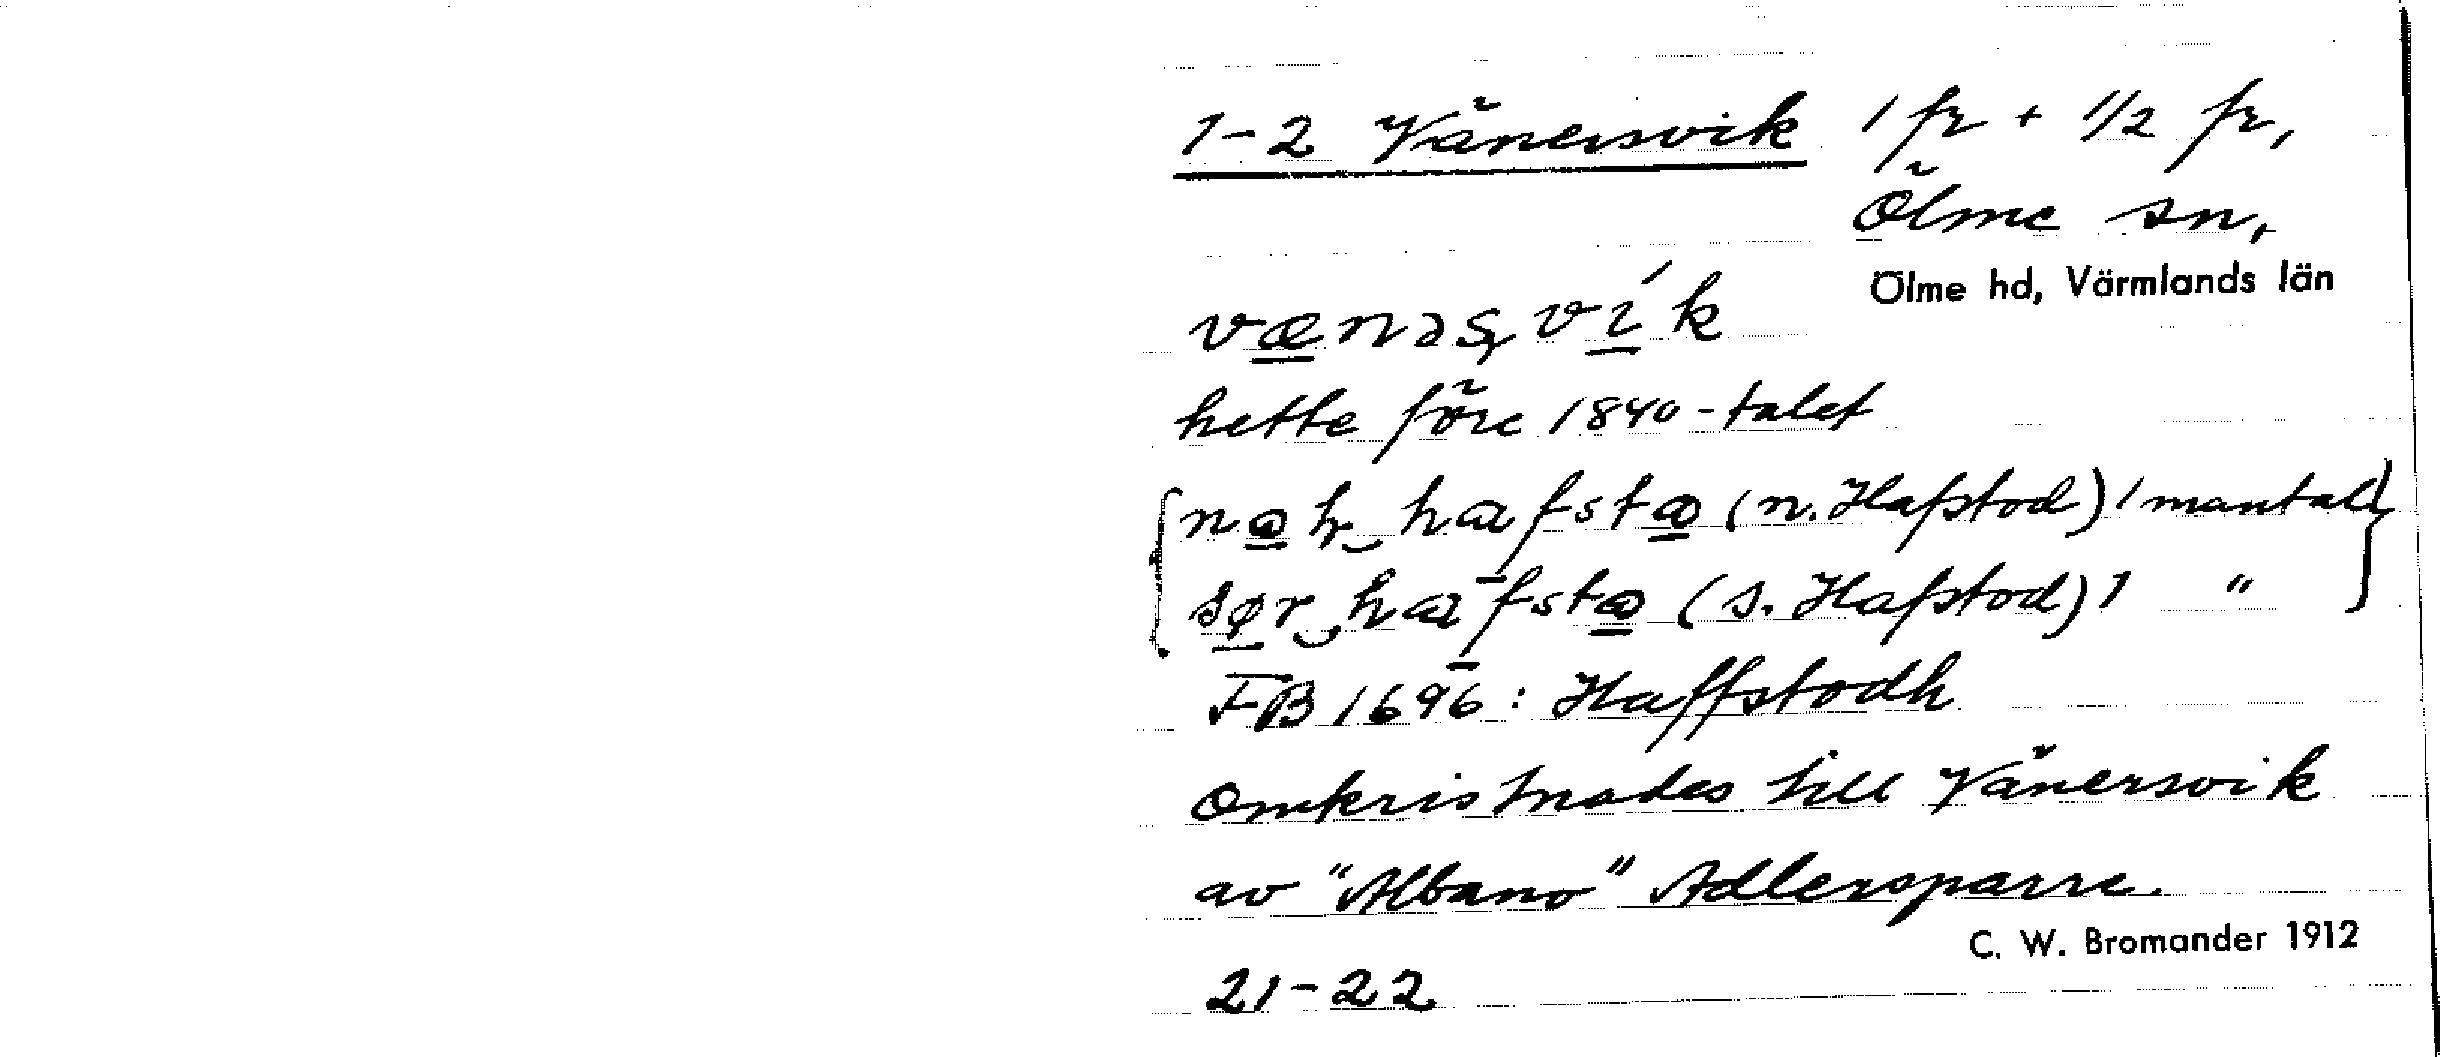 1-2 Vänersvik 1 fr + 1/2 fr,
Ölme sn,
Ölme hd, Värmlands län
vænəʂvík
hette före 1840-talet
hafstω (n. Hafstod) 1 mantal
sør hafstω (s. Hafstod) 1 "
FB 1696: Haffstodh
omkristnades till Vänersvik
av "Albano" Adlersparre.
C. W. Bromander 1912
21-22